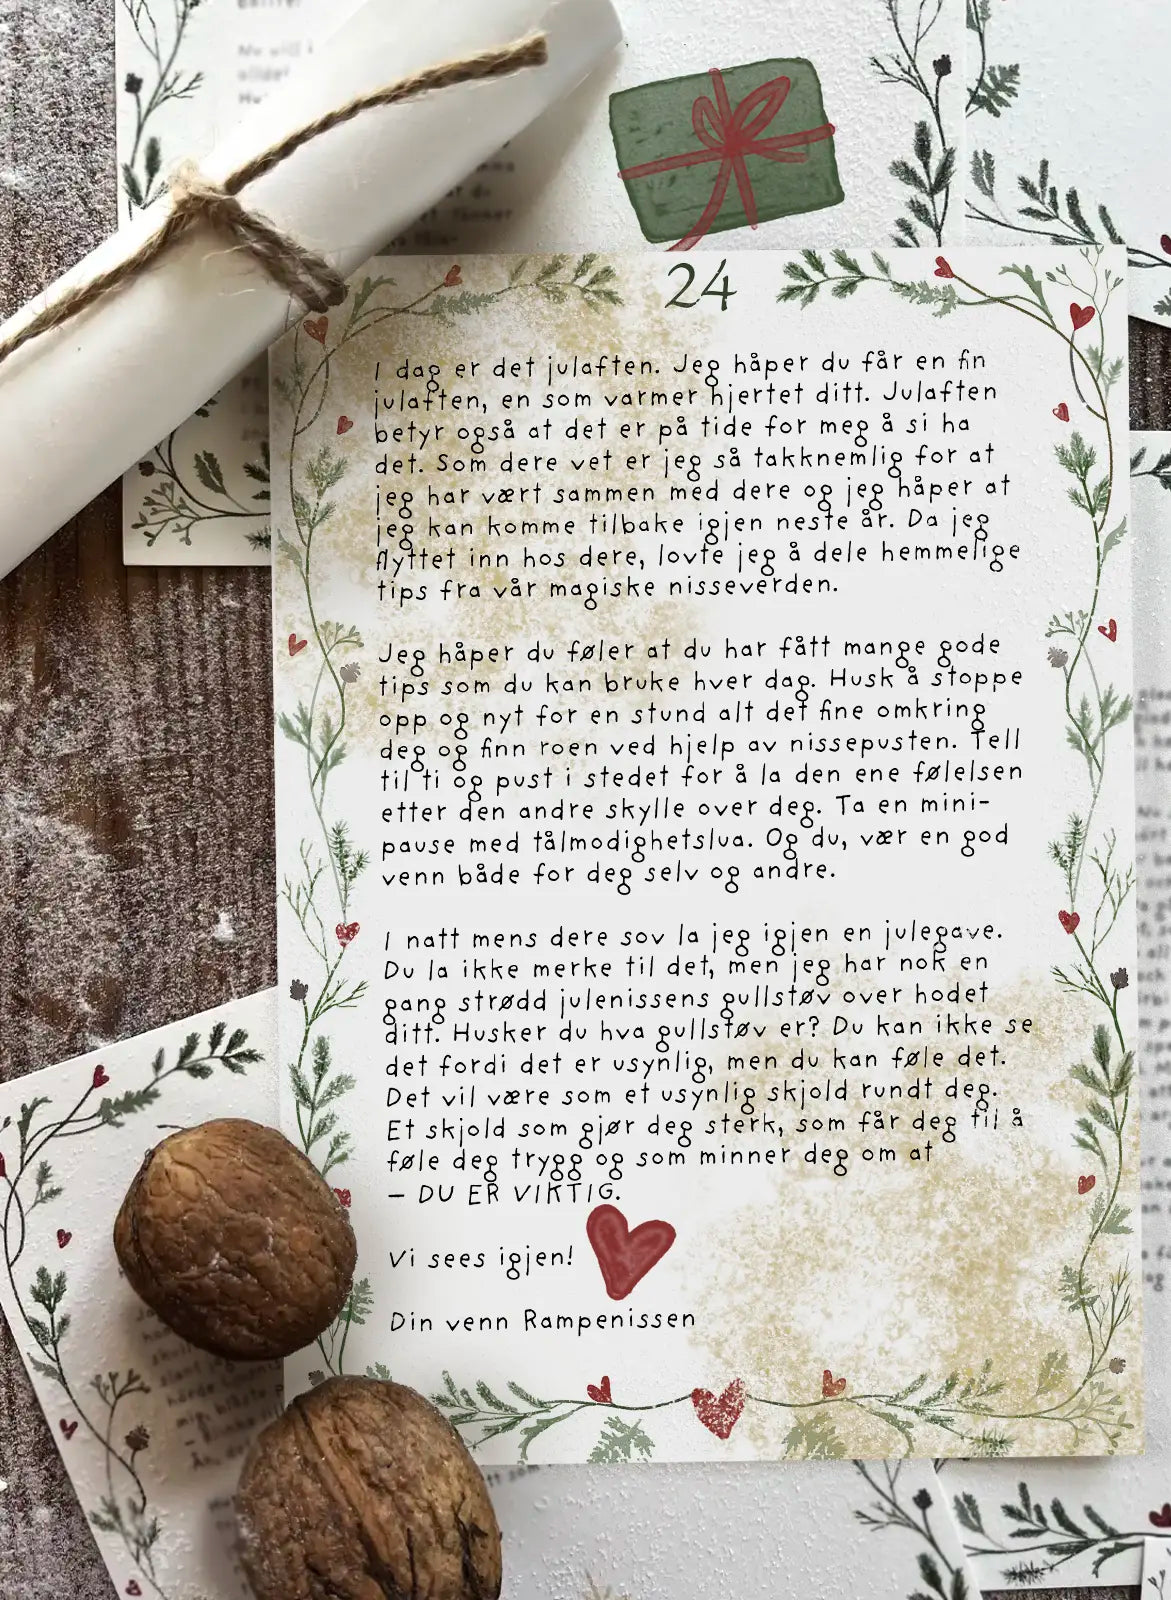 24
I dag er det julaften. Jeg håper du får en fin
julaften, en som varmer hjertet ditt. Julaften
betyr også at det er på tide for meg å si ha
det. Som dere vet er jeg så takknemlig for at
jeg har vært sammen med dere og jeg håper at
jeg kan komme tilbake igjen neste år. Da jeg
flyttet inn hos dere, lovte jeg å dele hemmelige
tips fra vår magiske nisseverden.
Jeg håper du føler at du har fått mange gode
tips som du kan bruke hver dag. Husk å stoppe
opp og nyt for en stund alt det fine omkring
deg og finn roen ved hjelp av nissepusten. Tell
til ti og pust i stedet for å la den ene følelsen
etter den andre skylle over deg. Ta en mini-
pause med tålmodighetslua. Og du, vær en god
venn både for deg selv og andre.
I natt mens dere sov la jeg igjen en julegave.
Du la ikke merke til det, men jeg har nok en
gang strødd julenissens gullstøv over hodet
ditt. Husker du hva gullstøv er? Du kan ikke se
det fordi det er usynlig, men du kan føle det.
Det vil være som et usynlig skjold rundt deg.
Et skjold som gjør deg sterk, som får deg til å
føle deg trygg og som minner deg om at
– DU ER VIKTIG.
Vi sees igjen!
Din venn Rampenissen